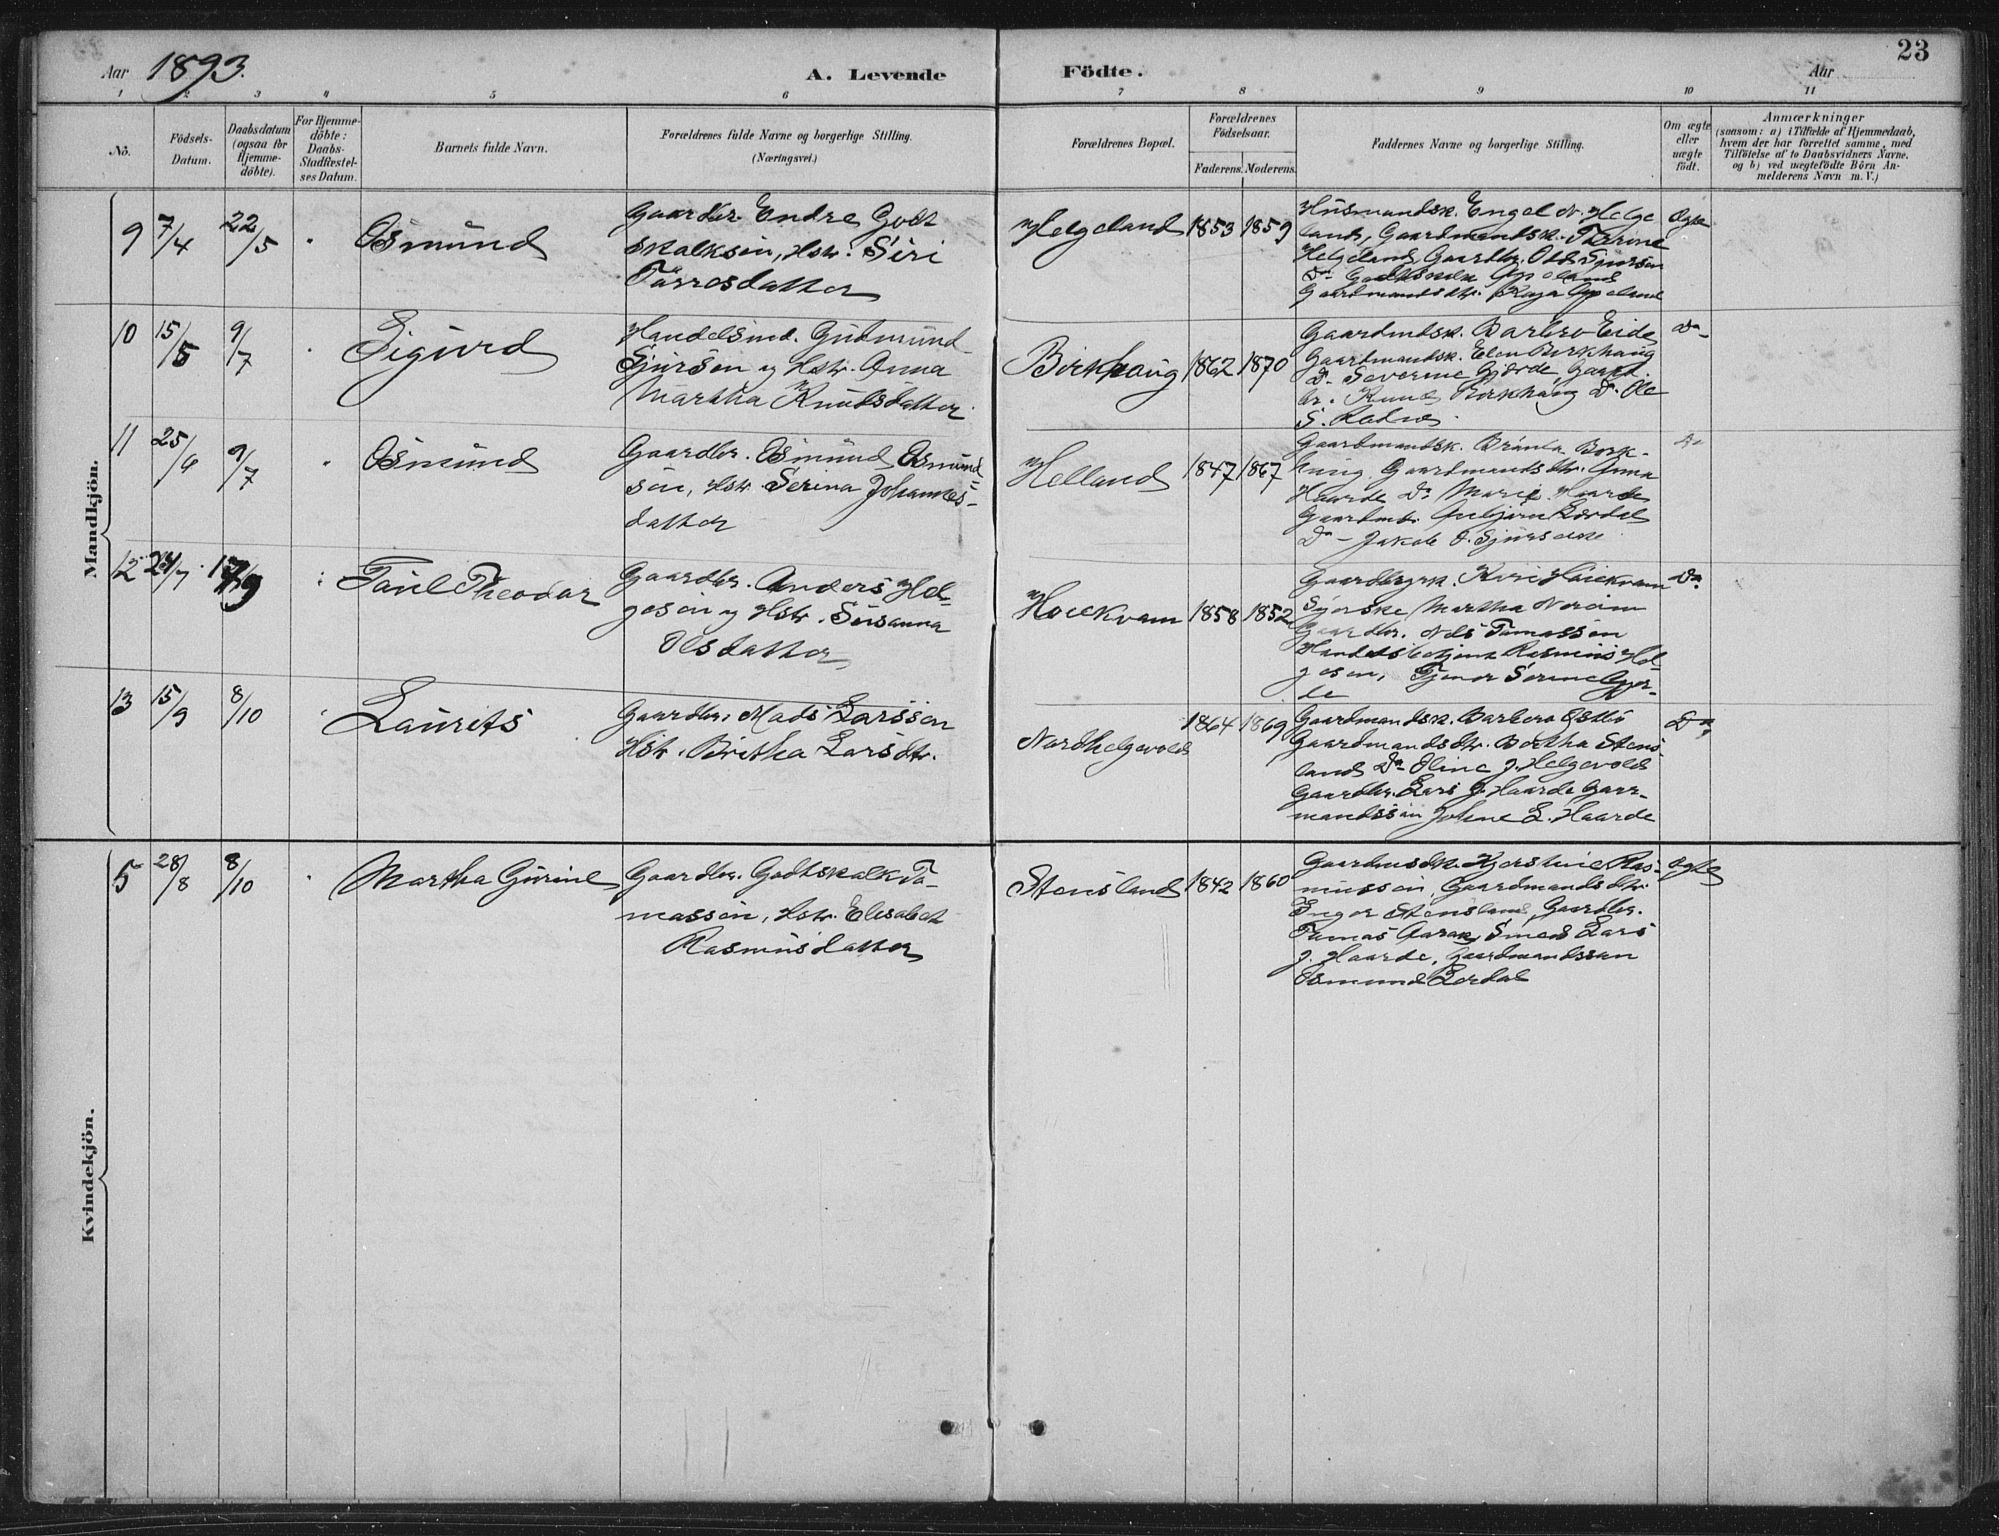 23
Aar 1893. A. Levende Födte. Aar
1 2 3 4 5 6 7 8 9 10 11
No.
Födsels-
Datum.
Daabsdatum
(ogsaa for
Hjemme-
döbte).
For Hjemme-
döbte:
Daabs-
Stadfæstel-
ses Datum.
Barnets fulde Navn.
Forældrenes fulde Navne og borgerlige Stilling.
(Næringsvei.)
Forældrenes Bopæl.
Forældrenes
Födselsaar.
Faderens. Moderens.
Faddernes Navne og borgerlige Stilling.
Om ægte
eller
uægte
födt.
Anmærkninger
(saasom: a) i Tilfælde af Hjemmedaab,
hvem der har forrettet samme, med
Tilföielse af to Daabsvidners Navne,
og b) ved uægtefödte Börn An-
melderens Navn m. V.)
Mandkjön.
9 7/4 22/5 Osmund
Gaardbr. Endre Godt
skalksen, Hstr. Siri
Tørresdatter
Helgeland 1853 1859
Husmandsk. Engel N. Helge
land, Gaardmandsk. Therine
Helgeland, Gaardbr. Odd Sjursen
Do Godtskalk Apeland
Gaardmandsdtr. Kaja Apeland
Ægte
10 15/5 9/7 Sigurd
Handelsmd. Gudmund
Sjursen og Hstr. Anna
Martha Knudsdatter.
Birkhaug 1862 1870
Gaardmdsk. Barbro Eide
Gaardmandsk. Elen Birkhaug
Do Severine Gjerde, Gaard
br. Knud Birkhaug Do Ole
S.
Do
11 25/ 9/7 Osmund
Gaardbr. Osmund Osmund
sen, Hstr. Serina Johannes-
datter
Helland 1847 1867
Gaardmandsk. Brünla Birk-
haug Gaardmandsdtr. Anna
Haarde Do Marie Haarde
Gaardmbr. Anbjørn Lærdal
Do Jakob O.
Do
12 24/7 17/9 Paul Theodor
Gaardbr. Anders Hel-
gesen og Hstr. Susanna
Olsdatter
Hoiekvam 1858 1852
Gaardbrgrk. Kari Hoiekvam
Martha
Gaardbr. Nils Tomassen
Handelsbetjent Rasmus Hel-
gesen, Tjener Serine Gjer-
de
Do
13 15/9 8/10 Laurits
Gaardbr. Mads Larssen
Hstr. Britha Larsdtr.
Nordhelgevold 1864 1869
Gaardmandsk. Barbero Østbø
Gaardmandsdtr. Bertha Stens-
land Do Oline J. Helgevold
Gaardbr. Lars J. Haarde Gaar-
mandssøn Johne L. Haarde
Do
Kvindekjön.
5 28/8 8/10 Martha Gurine
Gaardbr. Godtskalk To-
massen, Hstr. Elisabet
Rasmusdatter
Stensland 1842 1860
Gaardmdsk. Kjerstine Ras-
mussen, Gaardmandsdtr.
Inger Stensland, Gaardbr.
Tomas Aarak, Smed Lars
J. Haarde, Gaardmandssøn
Osmund Lerdal
Ægte